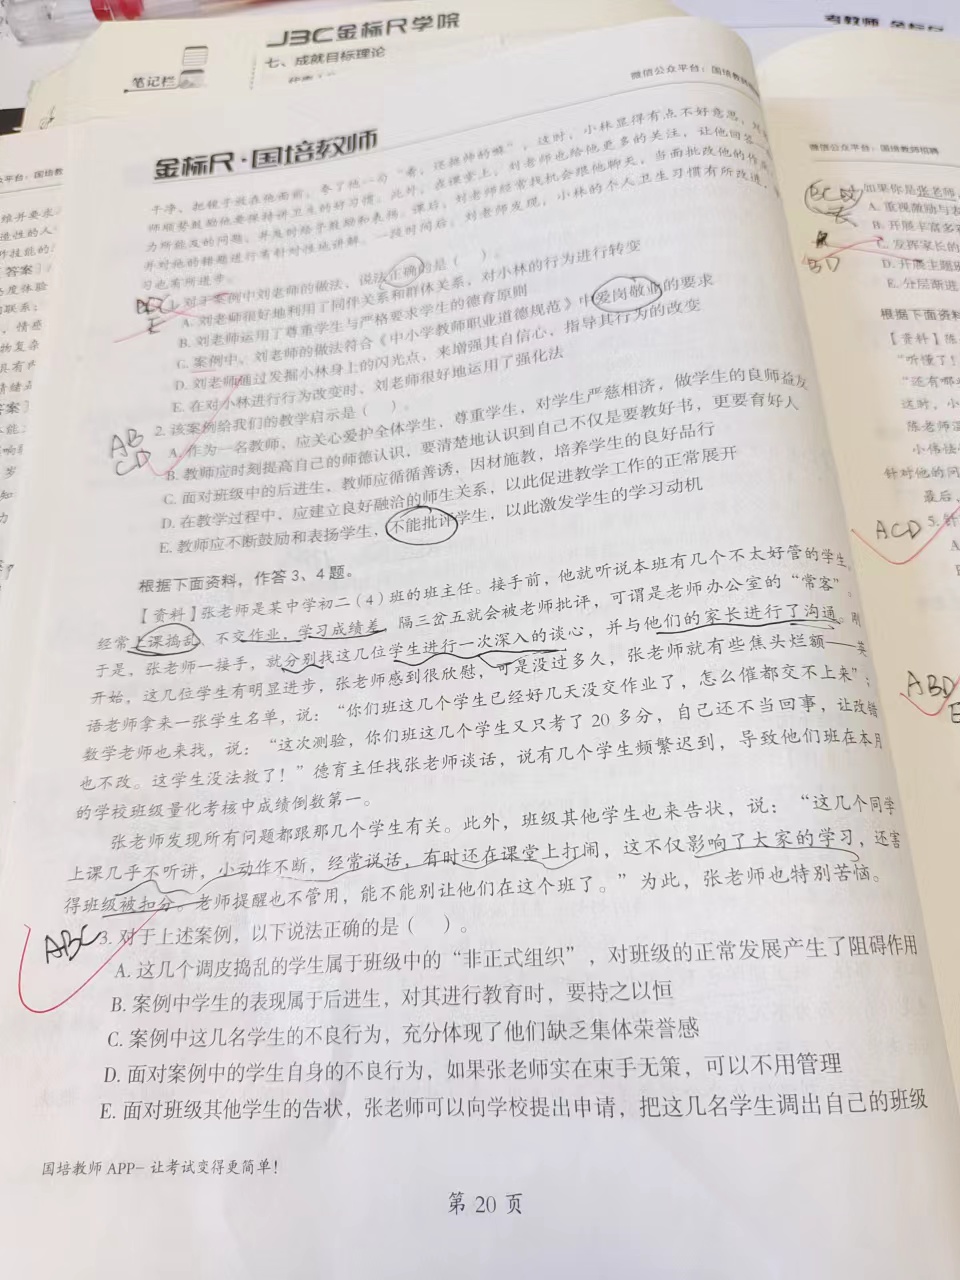 JBC金标尺学院
七、成就目标理论
笔记栏
考教师 金标尺
微信公众平台：国培教师
金标尺·国培教师
干净、把镜子放在他面前，夸了他一句“看，还挺帅的嘛”，这时，小林显得有点不好意思，刘
师顺势鼓励他要保持讲卫生的好习惯。此外，在课堂上，刘老师也给他更多的关注，让他回答
为所能及的问题，并及时给予鼓励和表扬。课后，刘老师经常找机会跟他聊天，当面批改他的作
并对他的错题进行有针对性地讲解。一段时间后，刘老师发现，小林的个人卫生习惯有所改进，
习也有所进步。
1. 对于案例中刘老师的做法，说法正确的是（ ）。
A. 刘老师很好地利用了同伴关系和群体关系，对小林的行为进行转变
B. 刘老师运用了尊重学生与严格要求学生的德育原则
C. 案例中，刘老师的做法符合《中小学教师职业道德规范》中爱岗敬业的要求
D. 刘老师通过发掘小林身上的闪光点，来增强其自信心，指导其行为的改变
E. 在对小林进行行为改变时，刘老师很好地运用了强化法
AB
CD
2. 该案例给我们的教学启示是（ ）。
A. 作为一名教师，应关心爱护全体学生，尊重学生，对学生严慈相济，做学生的良师益友
B. 教师应时刻提高自己的师德认识，要清楚地认识到自己不仅是要教好书，更要育好人
C. 面对班级中的后进生，教师应循循善诱，因材施教，培养学生的良好品行
D. 在教学过程中，应建立良好融洽的师生关系，以此促进教学工作的正常展开
E. 教师应不断鼓励和表扬学生，不能批评学生，以此激发学生的学习动机
根据下面资料，作答3、4题。
【资料】张老师是某中学初二（4）班的班主任。接手前，他就听说本班有几个不太好管的学生，
经常上课捣乱、不交作业，学习成绩差，隔三岔五就会被老师批评，可谓是老师办公室的“常客”。
于是，张老师一接手，就分别找这几位学生进行一次深入的谈心，并与他们的家长进行了沟通。刚
开始，这几位学生有明显进步，张老师感到很欣慰，可是没过多久，张老师就有些焦头烂额——英
语老师拿来一张学生名单，说：“你们班这几个学生已经好几天没交作业了，怎么催都交不上来”；
数学老师也来找，说：“这次测验，你们班这几个学生又只考了20多分，自己还不当回事，让改错
也不改。这学生没法教了！”德育主任找张老师谈话，说有几个学生频繁迟到，导致他们班在本月
的学校班级量化考核中成绩倒数第一。
张老师发现所有问题都跟那几个学生有关。此外，班级其他学生也来告状，说：“这几个同学
上课几乎不听讲，小动作不断，经常说话，有时还在课堂上打闹，这不仅影响了大家的学习，还害
得班级被扣分。老师提醒也不管用，能不能别让他们在这个班了。”为此，张老师也特别苦恼。
ABC
3. 对于上述案例，以下说法正确的是（ ）。
A. 这几个调皮捣乱的学生属于班级中的“非正式组织”，对班级的正常发展产生了阻碍作用
B. 案例中学生的表现属于后进生，对其进行教育时，要持之以恒
C. 案例中这几名学生的不良行为，充分体现了他们缺乏集体荣誉感
D. 面对案例中的学生自身的不良行为，如果张老师实在束手无策，可以不用管理
E. 面对班级其他学生的告状，张老师可以向学校提出申请，把这几名学生调出自己的班级
国培教师 APP- 让考试变得更简单！
第 20 页
微信公众平台：国培教师招聘
如果你是张老师，
A. 重视激励与表
B. 开展丰富多
C. 发挥家长的
D. 开展主题班
E. 分层渐进
BD
根据下面资料
【资料】陈
“听懂了！
“还有哪
这时，小
陈老师温
小伟怯
针对他的问
最后，
ACD
5.
ABD
E